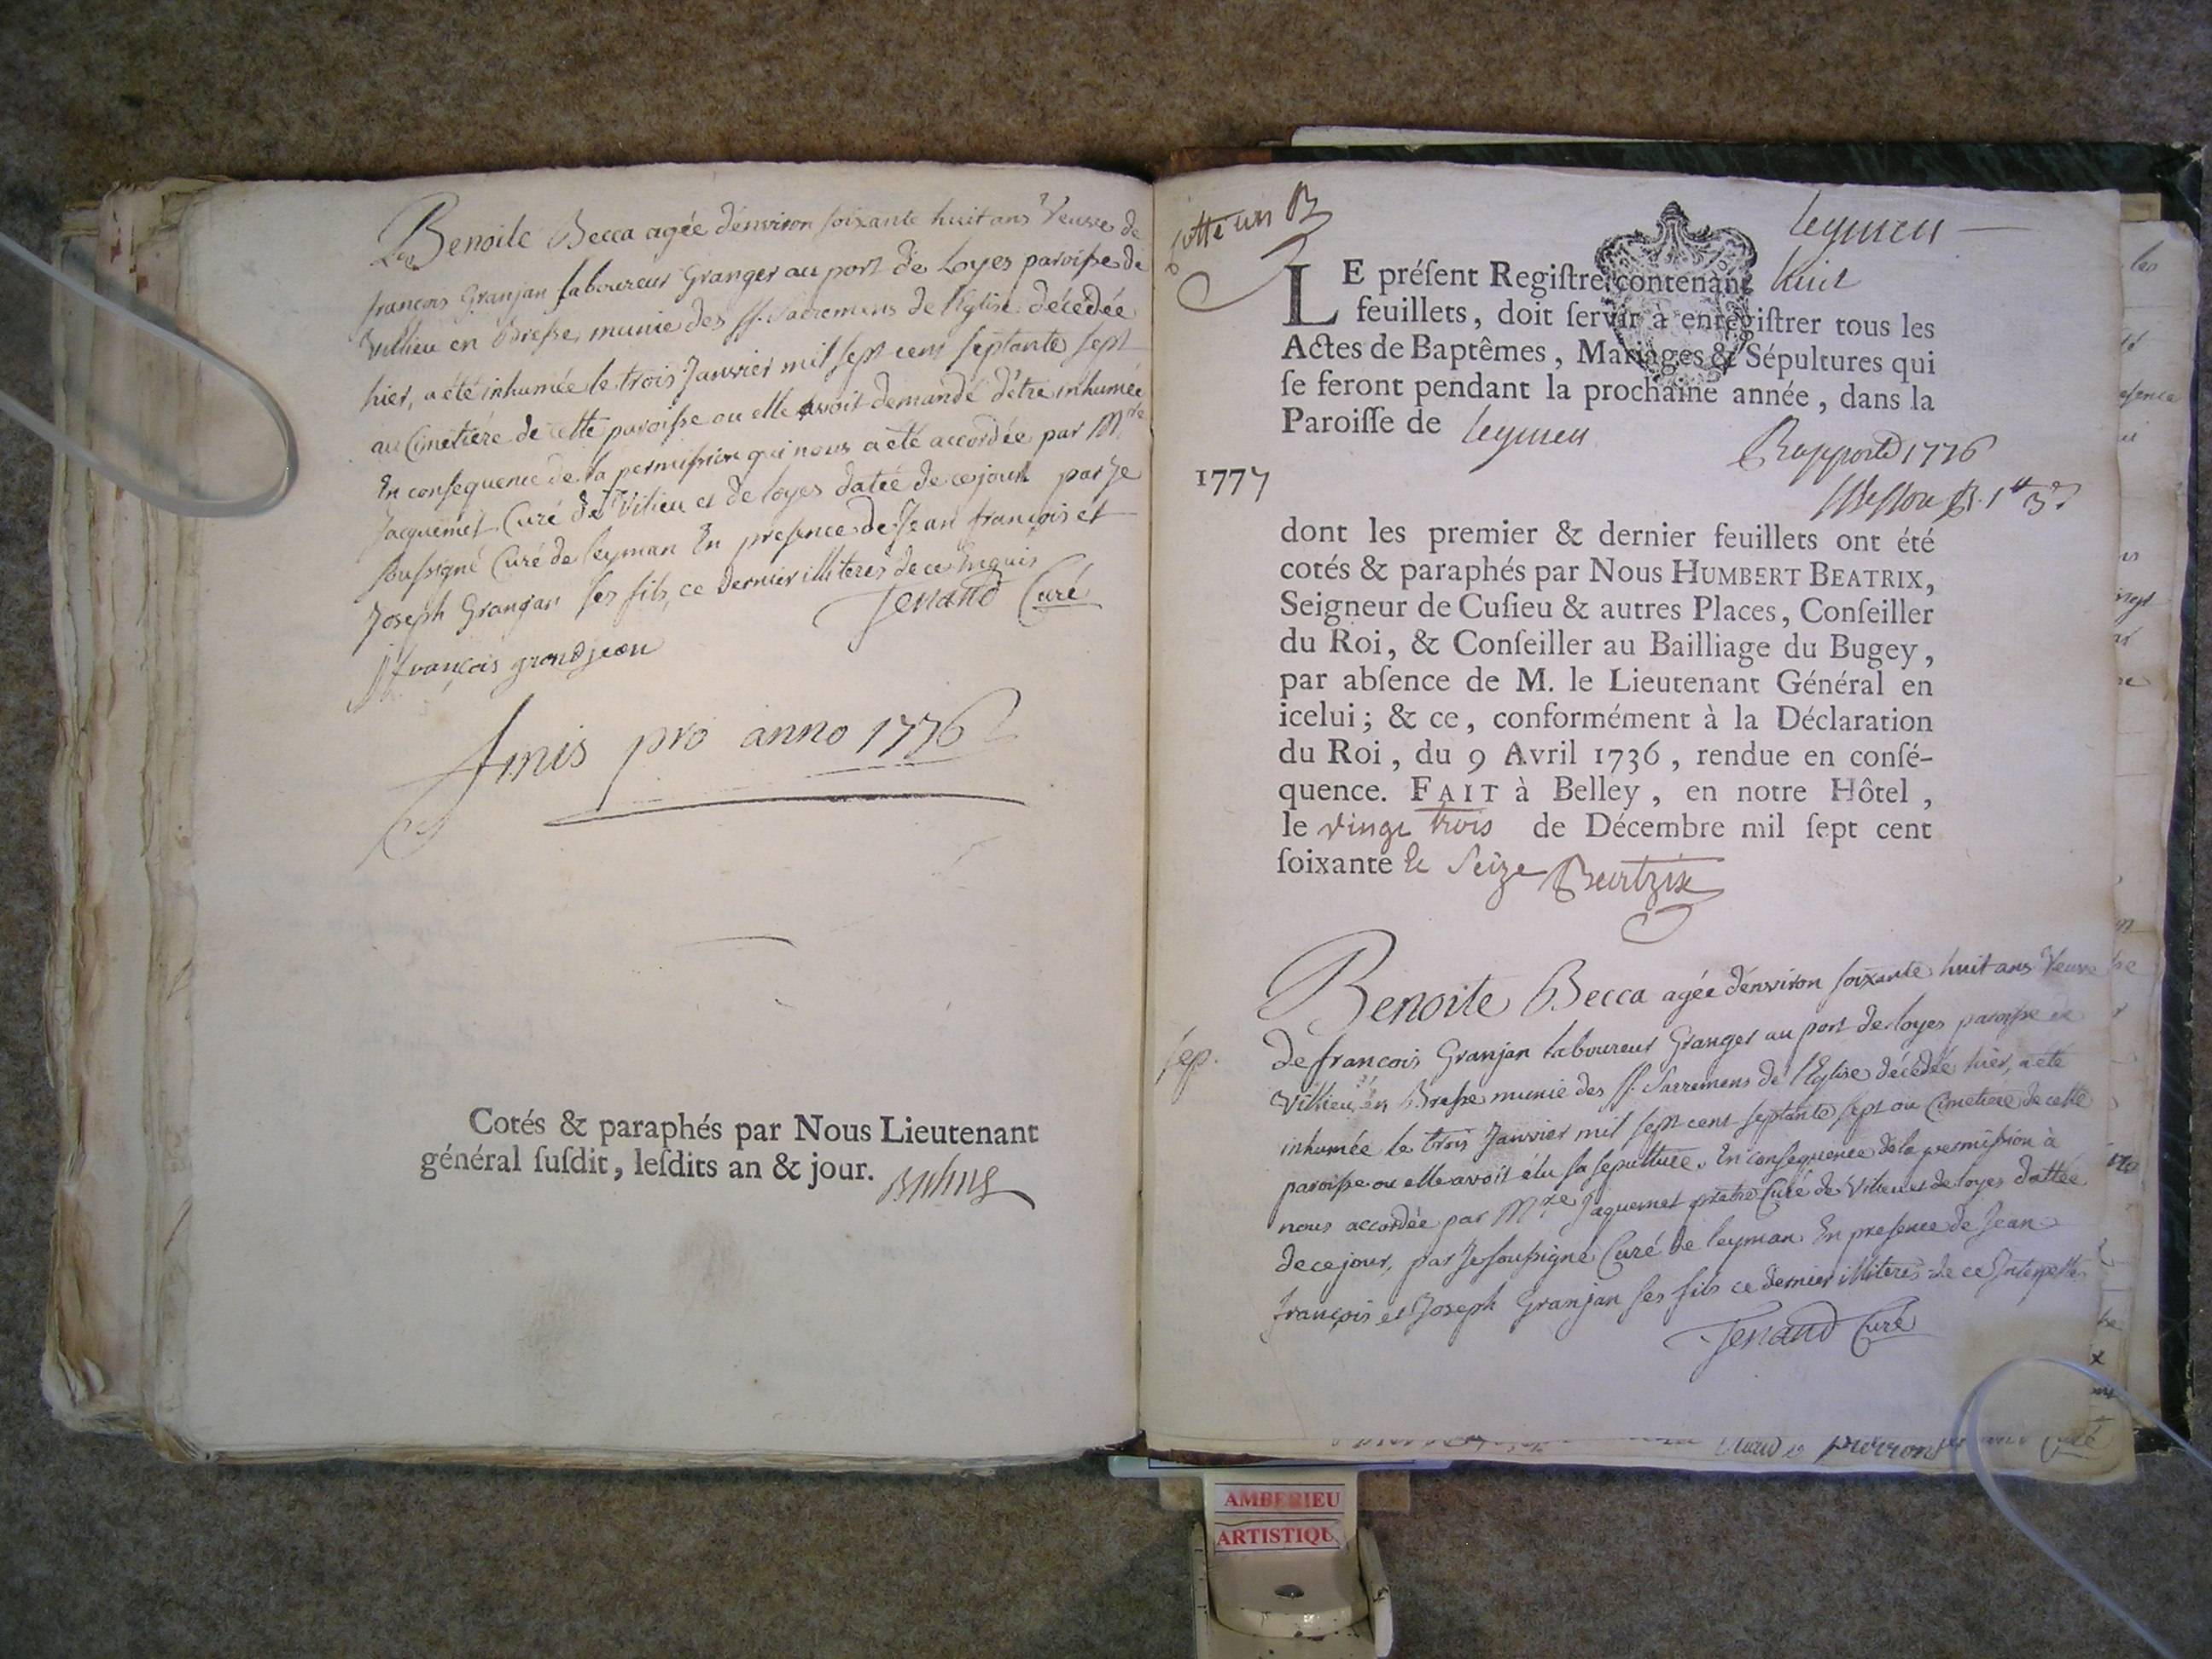 Benoite Becca agée d'environ soixante huit ans Veuve de
francois Granjan laboureur Granger au port de Loyes paroisse de
Villieu en Bresse, munie des SS. Sacremens de l'Eglise décédée
hier, a été inhumée le trois Janvier mil sept cens septante sept
au Cimetiére de cette paroisse ou elle avoit demandé d'etre inhumée
En consequence de la permission qui nous a été accordée par Mre
Jacquemet Curé de Vilieu et de loyes datée de ce jour par Je
soussigné Curé de leyman En presence de Jean françois et
Joseph Granjan ses fils, ce dernier illiteres de ce Enquis
Jenand Curé
françois grandjean
finis pro anno 1776
Cotés & paraphés par Nous Lieutenant
général suſdit, leſdits an & jour.
cotte un B
leymen
LE préſent Regiſtre contenant huit
feuillets, doit ſervir à enregiſtrer tous les
Actes de Baptêmes, Mariages & Sépultures qui
ſe feront pendant la prochaine année, dans la
Paroiſſe de leymen
Rapporté 1776
1777
dont les premier & dernier feuillets ont été
cotés & paraphés par Nous HUMBERT BEATRIX,
Seigneur de Cuſieu & autres Places, Conſeiller
du Roi, & Conſeiller au Bailliage du Bugey,
par abſence de M. le Lieutenant Général en
icelui; & ce, conformément à la Déclaration
du Roi, du 9 Avril 1736, rendue en conſé-
quence. FAIT à Belley, en notre Hôtel,
le vingt trois de Décembre mil ſept cent
ſoixante & Seize Beatrix
Benoite Becca agée d'environ soixante huit ans Veuve
sep.
de francois Granjan laboureur Granger au port de loyes paroisse de
Villieu en Bresse munie des SS. Sacremens de l'Eglise décédée hier, a été
inhumée le trois Janvier mil sept cent septante sept au Cimetiére de cette
paroisse ou elle avoit élu sa sepulture. En consequence de la permission à
nous accordée par Mre Jaquemet prêtre Curé de Vilieu et de loyes dattée
de ce jour, par Je soussigné Curé de leyman En presence de Jean
françois et Joseph Granjan ses fils ce dernier illiteres de ce Interpellé
Jenand Curé
AMBERIEU
ARTISTIQU